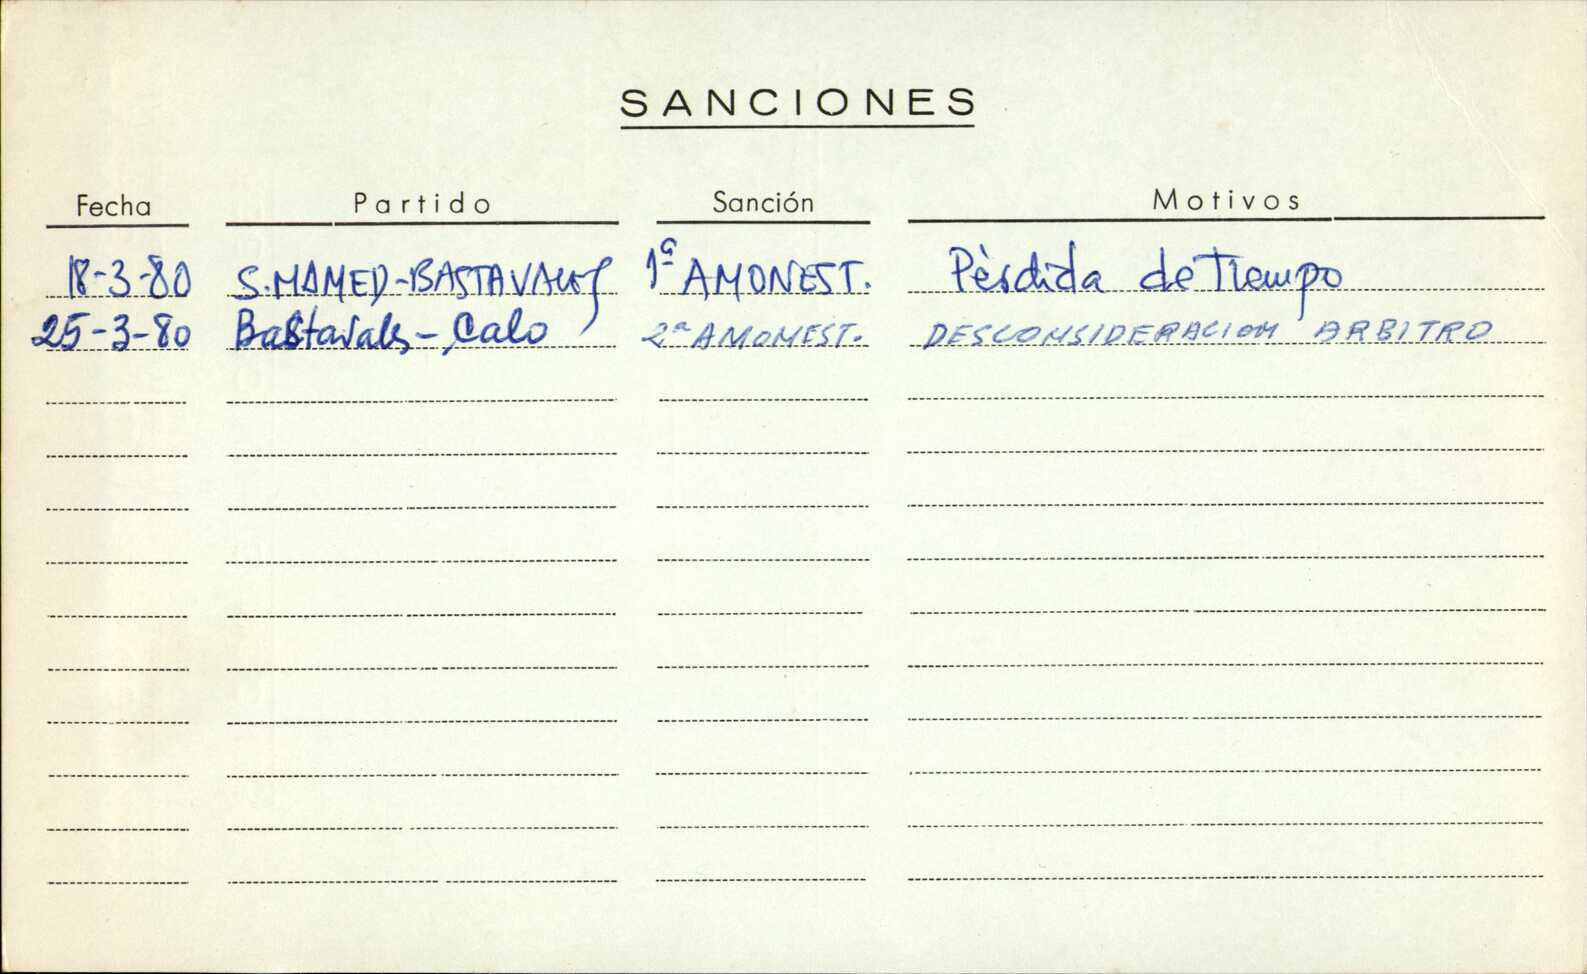 SANCIONES
Fecha Partido Sanción Motivos
18-3-80 S.MAMED-BASTAVALES 1ª AMONEST. Pèrdida de Tiempo
25-3-80 Bastavals - Calo 2ª AMONEST. DESCONSIDERACION ARBITRO